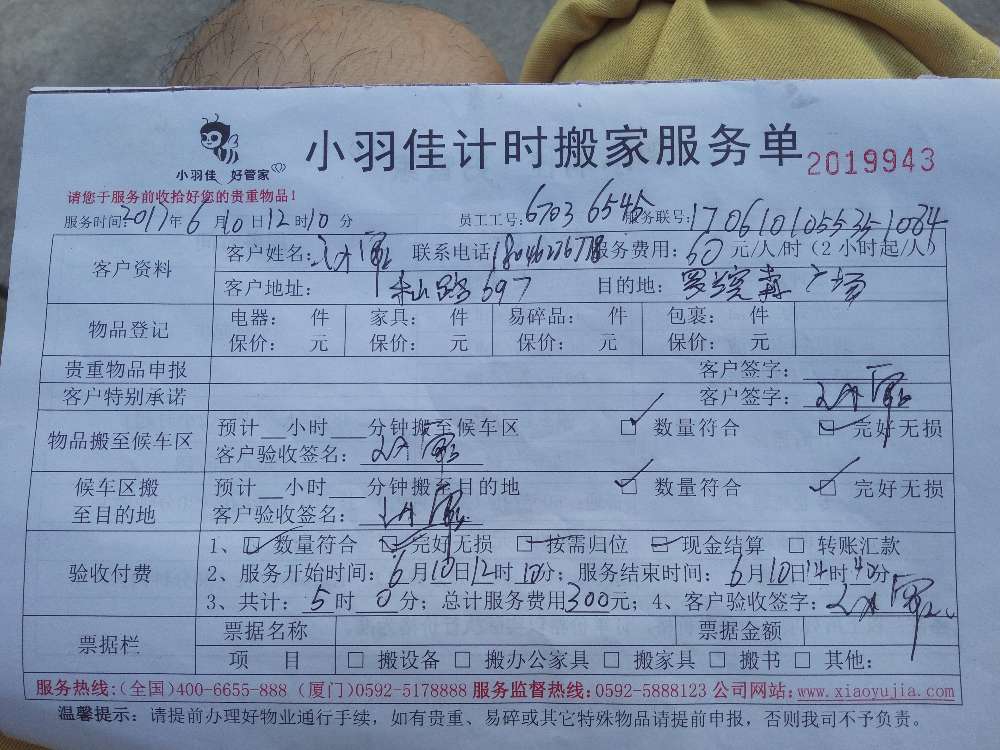 小羽佳计时搬家服务单 2019943
小羽佳 好管家
请您于服务前收拾好您的贵重物品!
服务时间:2017年6月10日12时10分 员工工号:6703 6545 服务联号:17061010553510
客户资料 客户姓名: 联系电话 服务费用:60元/人/时(2小时起/人)
客户地址: 路597 目的地: 广场
物品登记 电器: 件 家具: 件 易碎品: 件 包裹: 件
保价: 元 保价: 元 保价: 元 保价: 元
贵重物品申报 客户签字:
客户特别承诺 客户签字:
物品搬至候车区 预计__小时___分钟搬至候车区 ☑ 数量符合 ☑ 完好无损
客户验收签名:
候车区搬至目的地 预计__小时___分钟搬至目的地 ☑ 数量符合 ☑ 完好无损
客户验收签名:
验收付费 1、☑ 数量符合 ☑ 完好无损 ☑ 按需归位 ☑ 现金结算 □ 转账汇款
2、服务开始时间:6月10日12时10分;服务结束时间:6月10日14时40分
3、共计:5时0分;总计服务费用300元;4、客户验收签字:
票据栏 票据名称 票据金额
项 目 □ 搬设备 □ 搬办公家具 □ 搬家具 □ 搬书 □ 其他:
服务热线:(全国)400-6655-888 (厦门)0592-5178888 服务监督热线:0592-5888123 公司网站:www.xiaoyujia.com
温馨提示:请提前办理好物业通行手续,如有贵重、易碎或其它特殊物品请提前申报,否则我司不予负责。